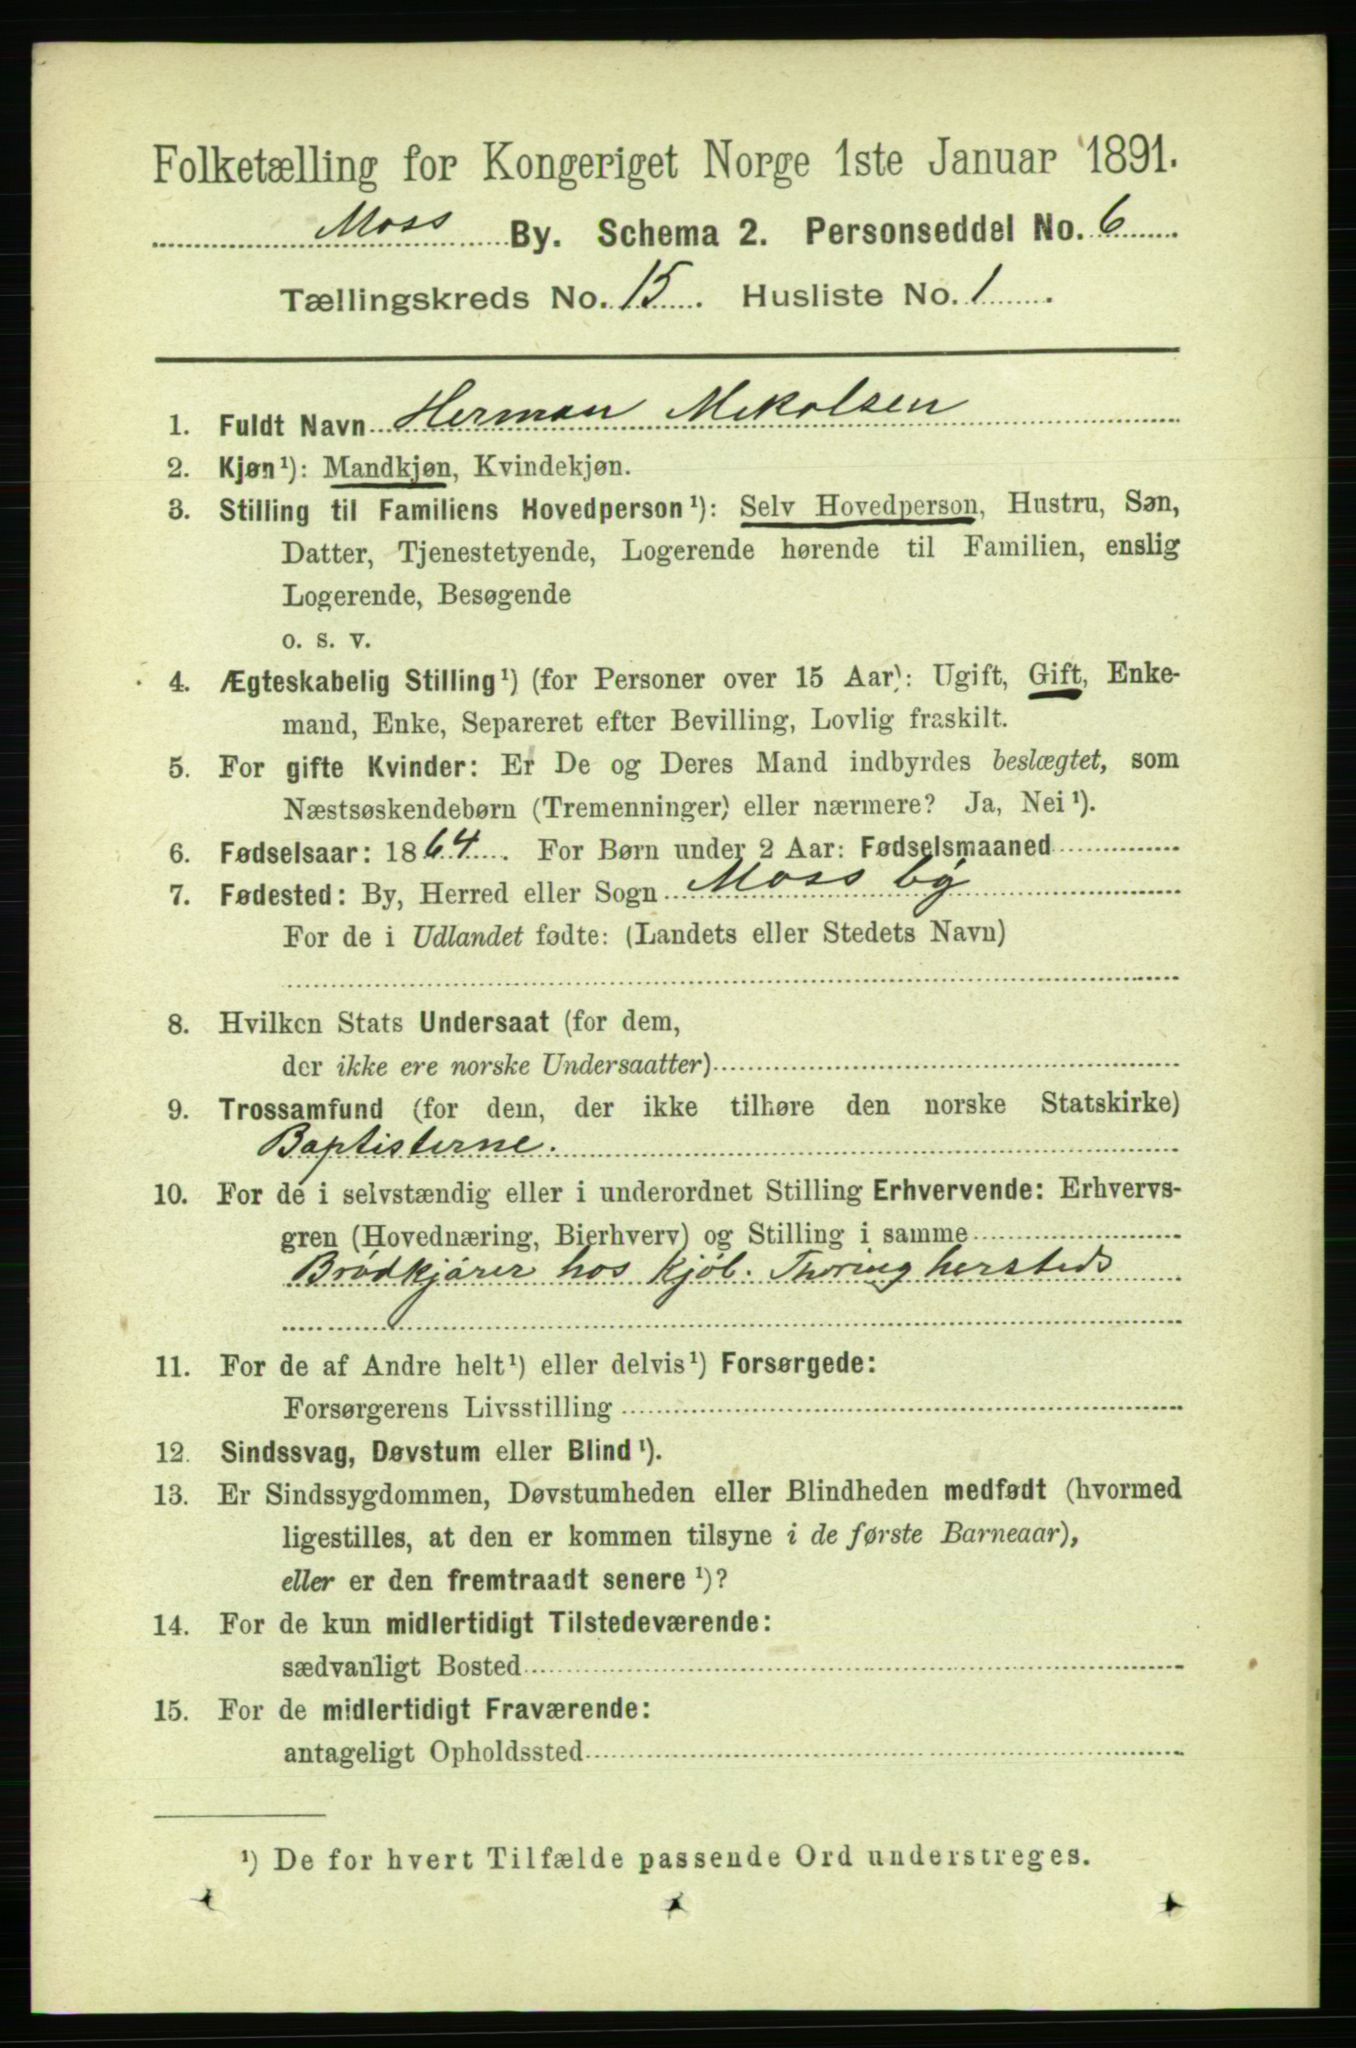 Folketælling for Kongeriget Norge 1ste Januar 1891.
Moss By. Schema 2. Personseddel No. 6
Tællingskreds No. 15. Husliste No. 1
1. Fuldt Navn Herman Mekolsen
2. Kjøn¹): Mandkjøn, Kvindekjøn.
3. Stilling til Familiens Hovedperson¹): Selv Hovedperson, Hustru, Søn,
Datter, Tjenestetyende, Logerende hørende til Familien, enslig
Logerende, Besøgende
o. s. v.
4. Ægteskabelig Stilling¹) (for Personer over 15 Aar): Ugift, Gift, Enke-
mand, Enke, Separeret efter Bevilling, Lovlig fraskilt.
5. For gifte Kvinder: Er De og Deres Mand indbyrdes beslægtet, som
Næstsøskendebørn (Tremenninger) eller nærmere? Ja, Nei¹).
6. Fødselsaar: 1864. For Børn under 2 Aar: Fødselsmaaned
7. Fødested: By, Herred eller Sogn Moss by
For de i Udlandet fødte: (Landets eller Stedets Navn)
8. Hvilken Stats Undersaat (for dem,
der ikke ere norske Undersaatter)
9. Trossamfund (for dem, der ikke tilhøre den norske Statskirke)
Baptisterne.
10. For de i selvstændig eller i underordnet Stilling Erhvervende: Erhvervs-
gren (Hovednæring, Bierhverv) og Stilling i samme
Brødkjører hos Kjöb. Thoring
11. For de af Andre helt¹) eller delvis¹) Forsørgede:
Forsørgerens Livsstilling
12. Sindssvag, Døvstum eller Blind¹).
13. Er Sindssygdommen, Døvstumheden eller Blindheden medfødt (hvormed
ligestilles, at den er kommen tilsyne i de første Barneaar),
eller er den fremtraadt senere¹)?
14. For de kun midlertidigt Tilstedeværende:
sædvanligt Bosted
15. For de midlertidigt Fraværende:
antageligt Opholdssted
¹) De for hvert Tilfælde passende Ord understreges.